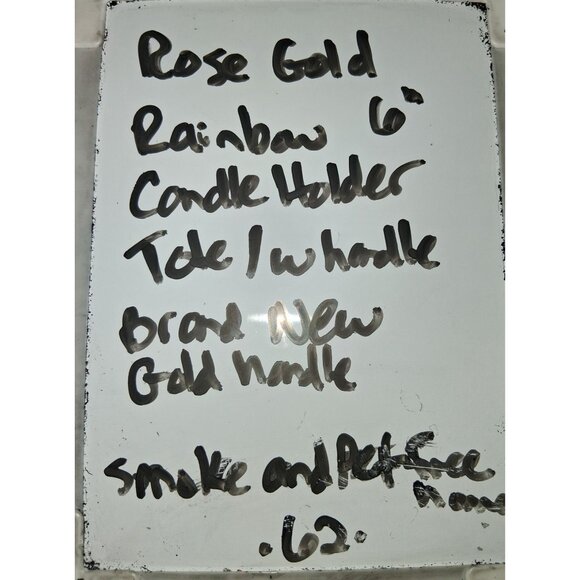 Rose Gold
Rainbow 6"
Candle Holder
Tote / w handle
Brand New
Gold handle
Smoke and Pet Free
home
.62.